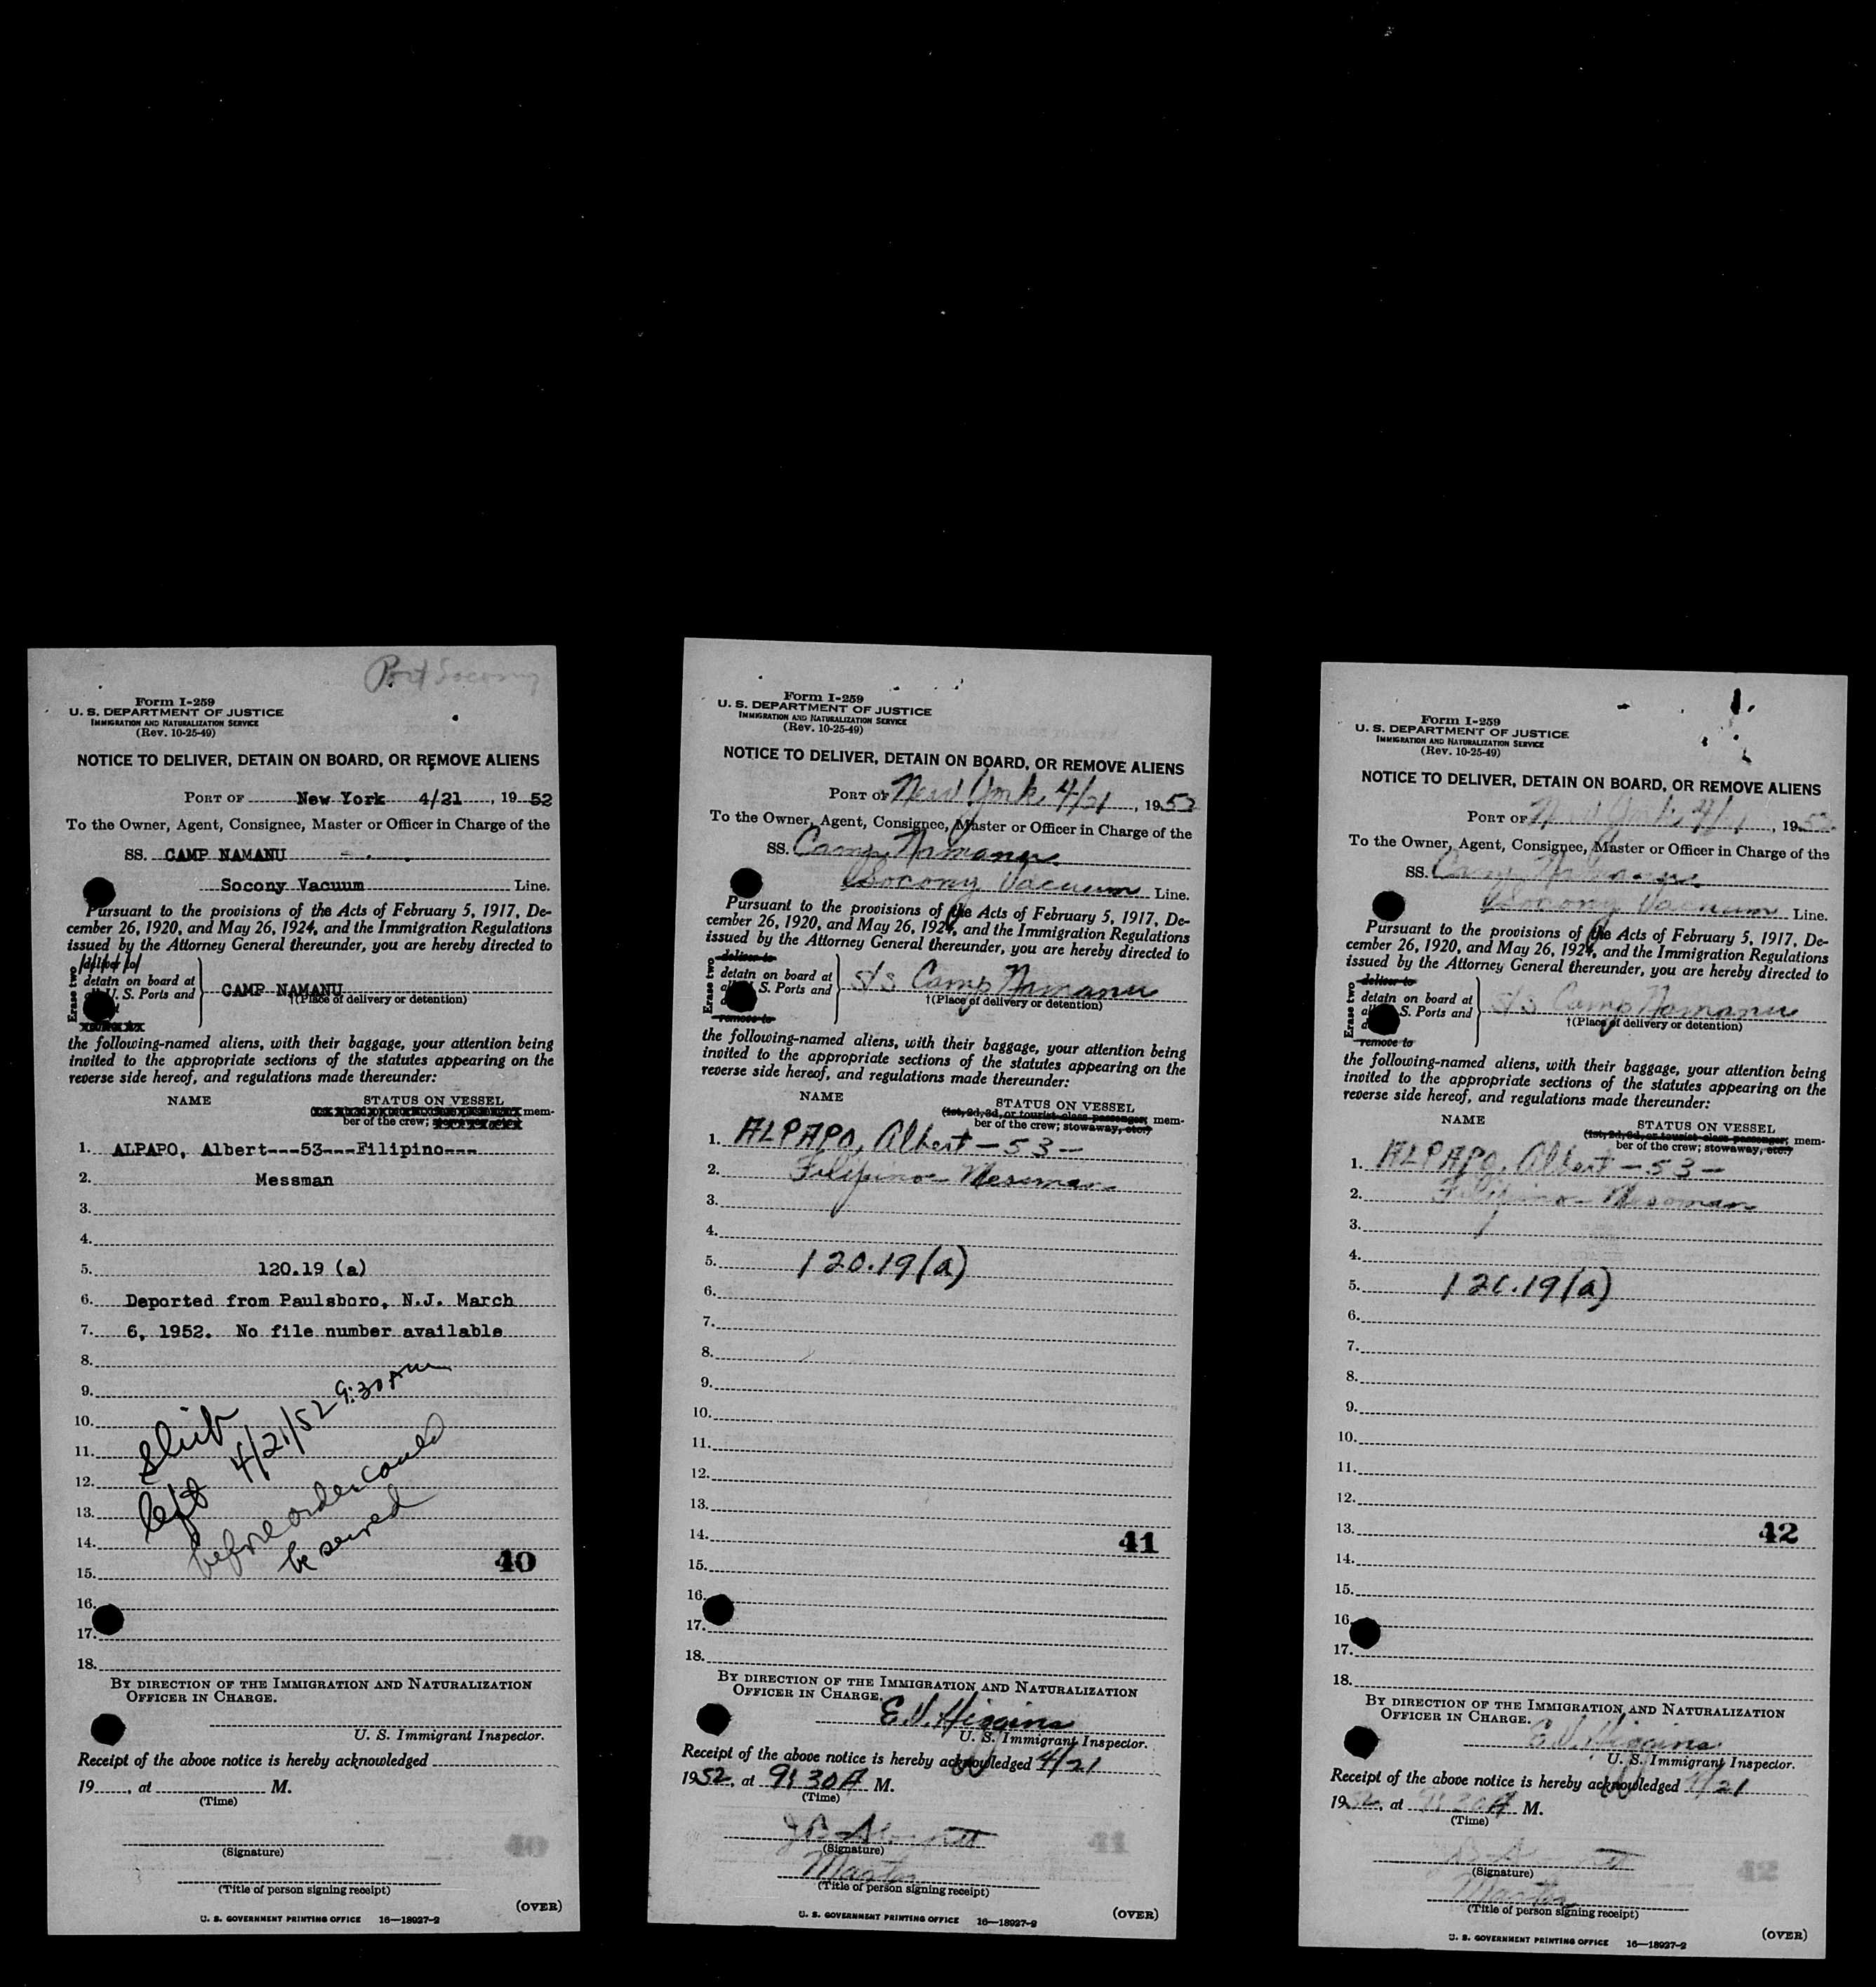 Port Socony
Form I-259
U. S. DEPARTMENT OF JUSTICE
IMMIGRATION AND NATURALIZATION SERVICE
(Rev. 10-25-49)
NOTICE TO DELIVER, DETAIN ON BOARD, OR REMOVE ALIENS
PORT OF New York 4/21, 1952
To the Owner, Agent, Consignee, Master or Officer in Charge of the
SS. CAMP NAMANU
Socony Vacuum Line.
Pursuant to the provisions of the Acts of February 5, 1917, De-
cember 26, 1920, and May 26, 1924, and the Immigration Regulations
issued by the Attorney General thereunder, you are hereby directed to
Erase two
deliver to
detain on board at
U. S. Ports and
CAMP NAMANU
†(Place of delivery or detention)
the following-named aliens, with their baggage, your attention being
invited to the appropriate sections of the statutes appearing on the
reverse side hereof, and regulations made thereunder:
NAME STATUS ON VESSEL
mem-
ber of the crew;
1. ALPAPO, Albert---53---Filipino---
2. Messman
3.
4.
5. 120.19 (a)
6. Deported from Paulsboro, N.J. March
7. 6, 1952. No file number available
8.
9.
10.
11.
12.
13.
14.
15.
16.
17.
18.
Ship
left 4/21/52 9:30 AM
before order could
be served
40
BY DIRECTION OF THE IMMIGRATION AND NATURALIZATION
OFFICER IN CHARGE.
U. S. Immigrant Inspector.
Receipt of the above notice is hereby acknowledged
19, at M.
(Time)
40
(Signature)
(Title of person signing receipt)
(OVER)
U. S. GOVERNMENT PRINTING OFFICE 16—18927-2
Form I-259
U. S. DEPARTMENT OF JUSTICE
IMMIGRATION AND NATURALIZATION SERVICE
(Rev. 10-25-49)
NOTICE TO DELIVER, DETAIN ON BOARD, OR REMOVE ALIENS
PORT OF New York, 4/21, 1952
To the Owner, Agent, Consignee, Master or Officer in Charge of the
SS. Camp Namanu
Socony Vacuum Line.
Pursuant to the provisions of the Acts of February 5, 1917, De-
cember 26, 1920, and May 26, 1924, and the Immigration Regulations
issued by the Attorney General thereunder, you are hereby directed to
Erase two
deliver to
detain on board at
S. Ports and
remove to
s/s Camp Namanu
†(Place of delivery or detention)
the following-named aliens, with their baggage, your attention being
invited to the appropriate sections of the statutes appearing on the
reverse side hereof, and regulations made thereunder:
NAME STATUS ON VESSEL
(1st, 2d, 3d, or tourist-class passenger; mem-
ber of the crew; stowaway, etc.)
1. ALPAPO, Albert - 53 -
2. Filipino - Messman
3.
4.
5. 120.19(a)
6.
7.
8.
9.
10.
11.
12.
13.
14. 41
15.
16.
17.
18.
BY DIRECTION OF THE IMMIGRATION AND NATURALIZATION
OFFICER IN CHARGE.
E.V. Higgins
U. S. Immigrant Inspector.
Receipt of the above notice is hereby acknowledged 4/21
1952, at 9:30 A M.
(Time)
41
(Signature)
Master
(Title of person signing receipt)
(OVER)
U. S. GOVERNMENT PRINTING OFFICE 16—18927-2
Form I-259
U. S. DEPARTMENT OF JUSTICE
IMMIGRATION AND NATURALIZATION SERVICE
(Rev. 10-25-49)
NOTICE TO DELIVER, DETAIN ON BOARD, OR REMOVE ALIENS
PORT OF New York, 4/21, 1952
To the Owner, Agent, Consignee, Master or Officer in Charge of the
SS. Camp Namanu
Socony Vacuum Line.
Pursuant to the provisions of the Acts of February 5, 1917, De-
cember 26, 1920, and May 26, 1924, and the Immigration Regulations
issued by the Attorney General thereunder, you are hereby directed to
Erase two
deliver to
detain on board at
S. Ports and
remove to
s/s Camp Namanu
†(Place of delivery or detention)
the following-named aliens, with their baggage, your attention being
invited to the appropriate sections of the statutes appearing on the
reverse side hereof, and regulations made thereunder:
NAME STATUS ON VESSEL
(1st, 2d, 3d, or tourist-class passenger; mem-
ber of the crew; stowaway, etc.)
1. ALPAPO, Albert - 53 -
2. Filipino - Messman
3.
4.
5. 120.19(a)
6.
7.
8.
9.
10.
11.
12.
13. 42
14.
15.
16.
17.
18.
BY DIRECTION OF THE IMMIGRATION AND NATURALIZATION
OFFICER IN CHARGE.
E.V. Higgins
U. S. Immigrant Inspector.
Receipt of the above notice is hereby acknowledged 4/21
1952, at 9:30 A M.
(Time)
42
(Signature)
Master
(Title of person signing receipt)
(OVER)
U. S. GOVERNMENT PRINTING OFFICE 16—18927-2